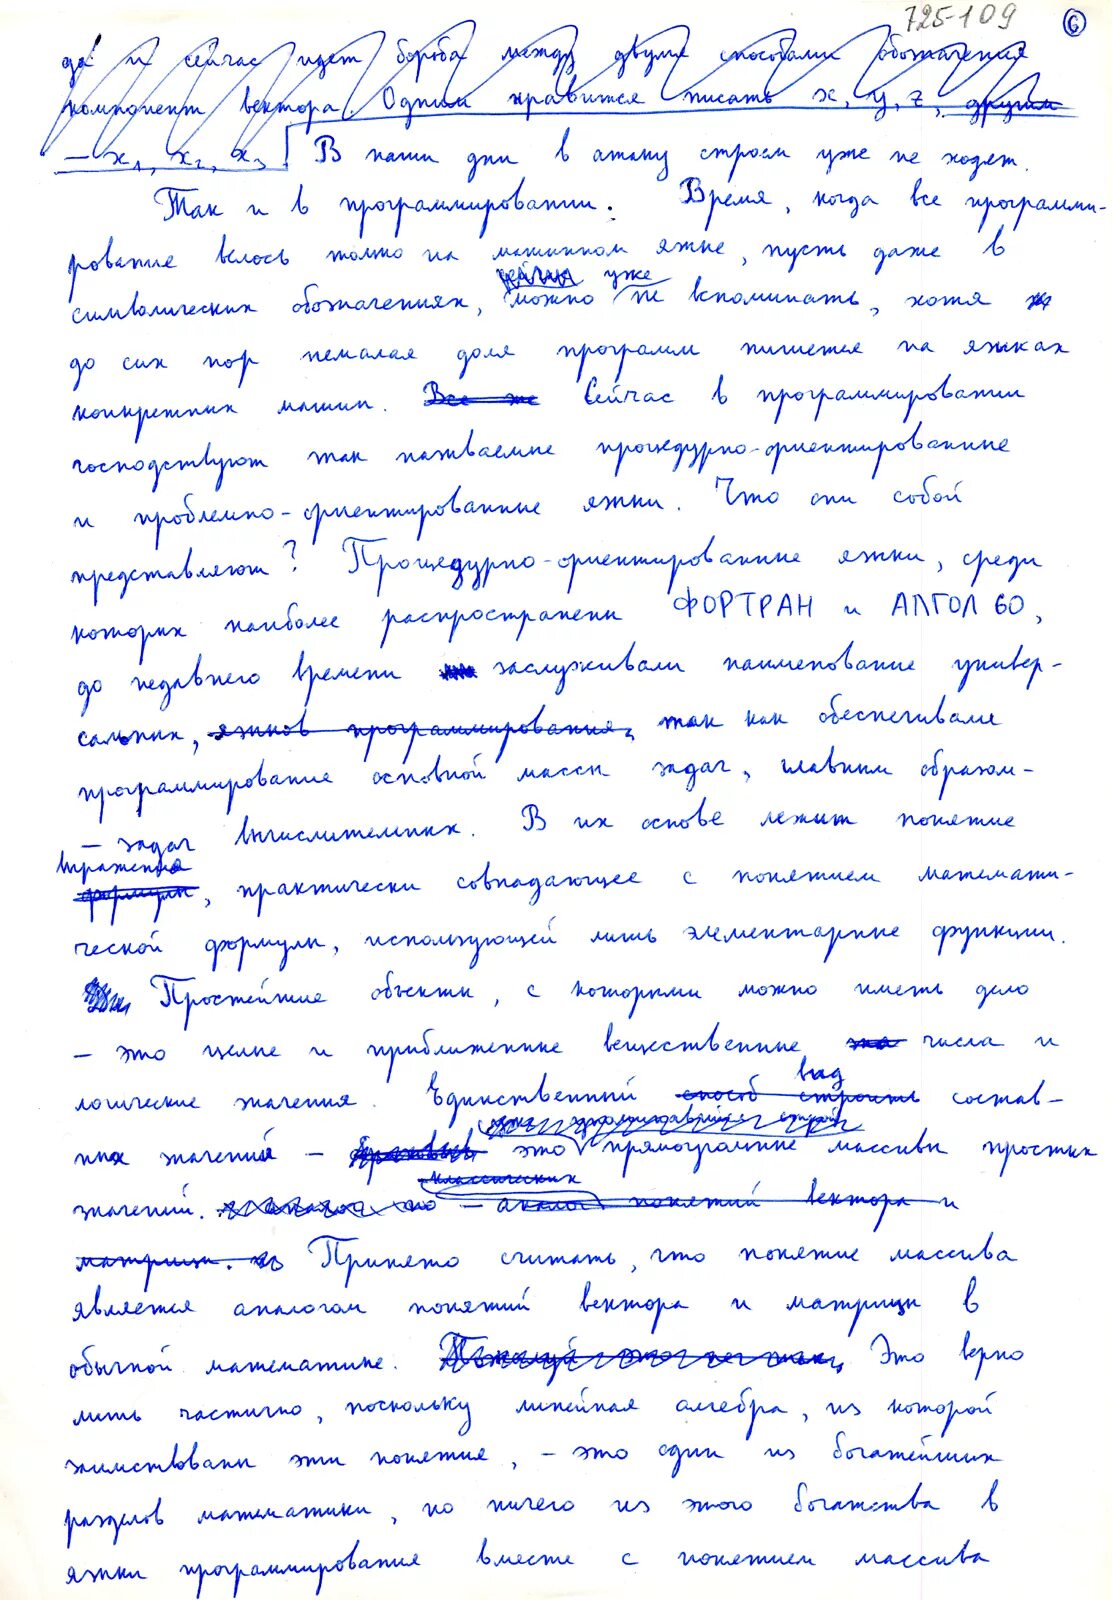 725-109 6
да и сейчас идет борьба между двумя способами обозначения
компонент вектора. Одним нравится писать x, y, z, другим
— x1, x2, x3. В наши дни в атаку строем уже не ходят.
Так и в программировании. Время, когда все программи-
рование велось только на машинном языке, пусть даже в
уже
символических обозначениях, можно не вспоминать, хотя
до сих пор немалая доля программ пишется на языках
конкретных машин. Все же Сейчас в программировании
господствуют так называемые процедурно-ориентированные
и проблемно-ориентированные языки. Что они собой
представляют? Процедурно-ориентированные языки, среди
которых наиболее распространены ФОРТРАН и АЛГОЛ 60,
до недавнего времени заслуживали наименование универ-
сальных, языков программирования, так как обеспечивали
программирование основной массы задач, главным образом —
— задач вычислительных. В их основе лежит понятие
выражения
формулы, практически совпадающее с понятием математи-
ческой формулы, использующей лишь элементарные функции.
Простейшие объекты, с которыми можно иметь дело
— это целые и приближенные вещественные числа и
вид
логические значения. Единственный способ строить состав-
ных значений — это прямоугольные массивы простых
классических
значений. — аналог понятий вектора и
матрицы. Принято считать, что понятие массива
является аналогом понятий вектора и матрицы в
обычной математике. Это верно
лишь частично, поскольку линейная алгебра, из которой
заимствованы эти понятия, — это один из богатейших
разделов математики, но ничего из этого богатства в
языки программирования вместе с понятием массива